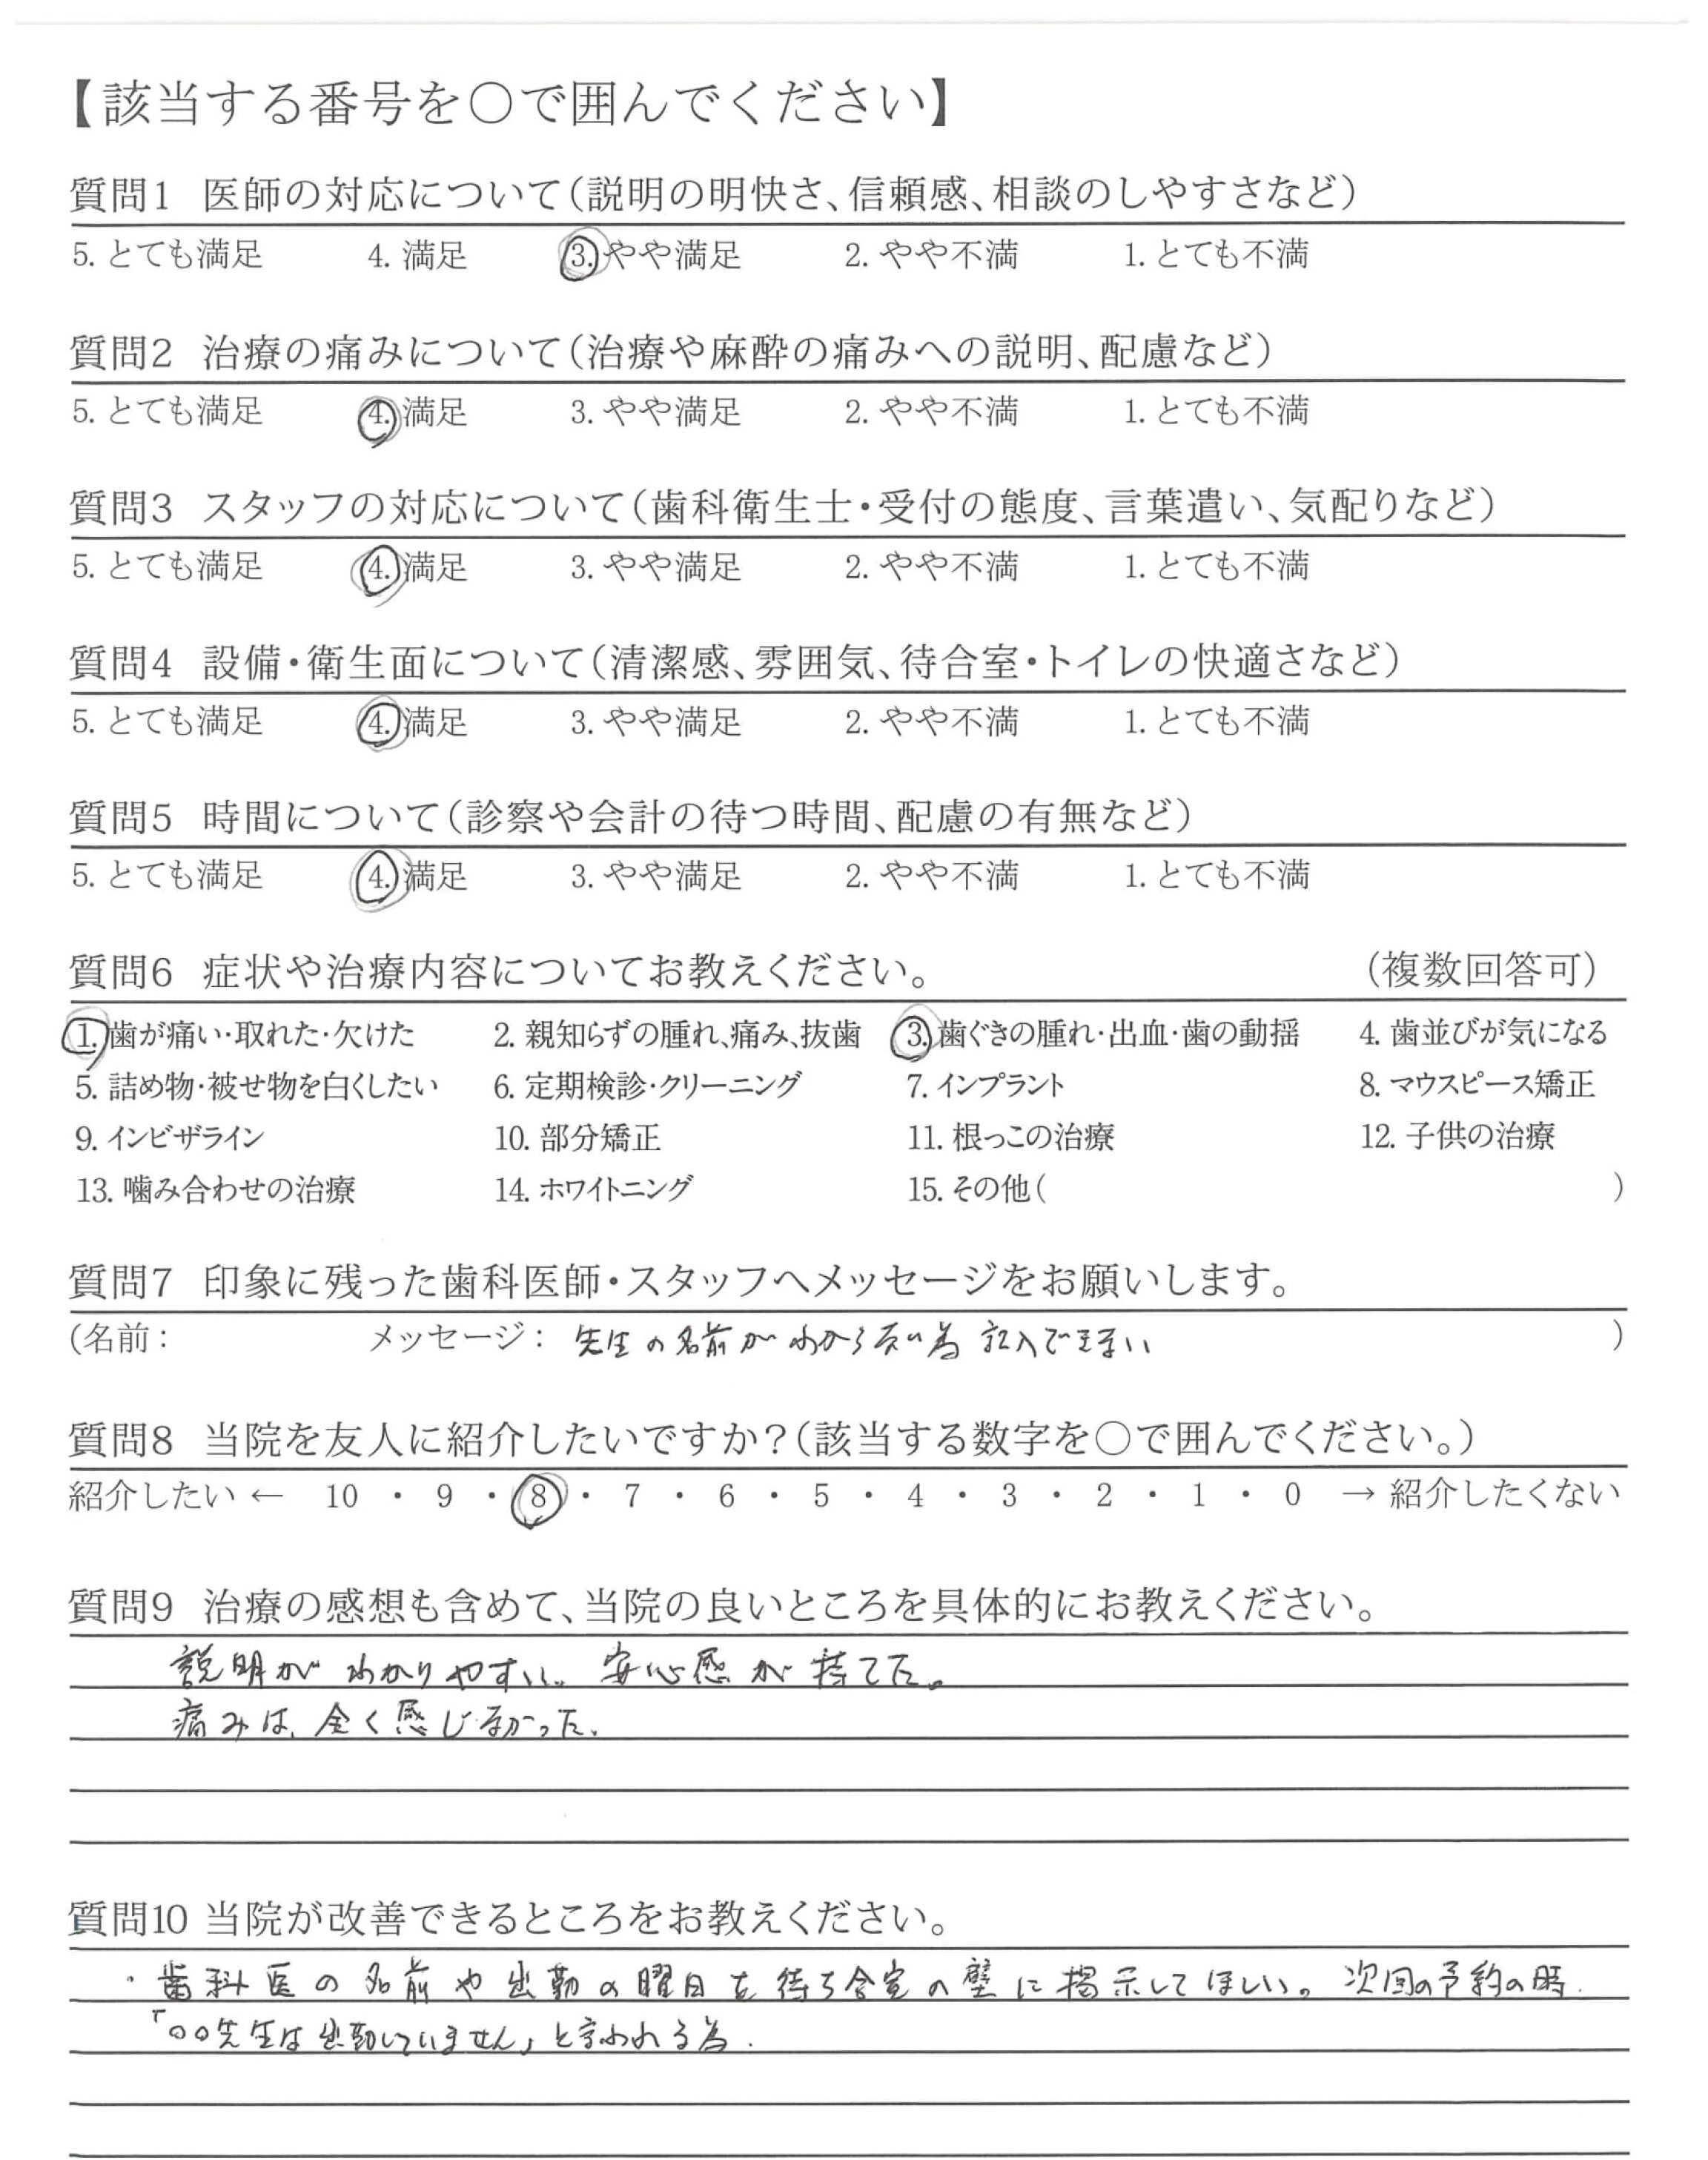 【該当する番号を○で囲んでください】
質問1 医師の対応について(説明の明快さ、信頼感、相談のしやすさなど)
5. とても満足 4. 満足 3. やや満足 2. やや不満 1. とても不満
質問2 治療の痛みについて(治療や麻酔の痛みへの説明、配慮など)
5. とても満足 4. 満足 3. やや満足 2. やや不満 1. とても不満
質問3 スタッフの対応について(歯科衛生士・受付の態度、言葉遣い、気配りなど)
5. とても満足 4. 満足 3. やや満足 2. やや不満 1. とても不満
質問4 設備・衛生面について(清潔感、雰囲気、待合室・トイレの快適さなど)
5. とても満足 4. 満足 3. やや満足 2. やや不満 1. とても不満
質問5 時間について(診察や会計の待つ時間、配慮の有無など)
5. とても満足 4. 満足 3. やや満足 2. やや不満 1. とても不満
質問6 症状や治療内容についてお教えください。 (複数回答可)
1. 歯が痛い・取れた・欠けた 2. 親知らずの腫れ、痛み、抜歯 3. 歯ぐきの腫れ・出血・歯の動揺 4. 歯並びが気になる
5. 詰め物・被せ物を白くしたい 6. 定期検診・クリーニング 7. インプラント 8. マウスピース矯正
9. インビザライン 10. 部分矯正 11. 根っこの治療 12. 子供の治療
13. 噛み合わせの治療 14. ホワイトニング 15. その他( )
質問7 印象に残った歯科医師・スタッフへメッセージをお願いします。
(名前: メッセージ: 先生の名前がわからない為 記入できない )
質問8 当院を友人に紹介したいですか?(該当する数字を○で囲んでください。)
紹介したい ← 10 ・ 9 ・ 8 ・ 7 ・ 6 ・ 5 ・ 4 ・ 3 ・ 2 ・ 1 ・ 0 → 紹介したくない
質問9 治療の感想も含めて、当院の良いところを具体的にお教えください。
説明がわかりやすい。安心感が持てた。
痛みは、全く感じなかった。
質問10 当院が改善できるところをお教えください。
・歯科医の名前や出勤の曜日を待ち合室の壁に掲示してほしい。次回の予約の時.
「○○先生は出勤していません」と言われる為.